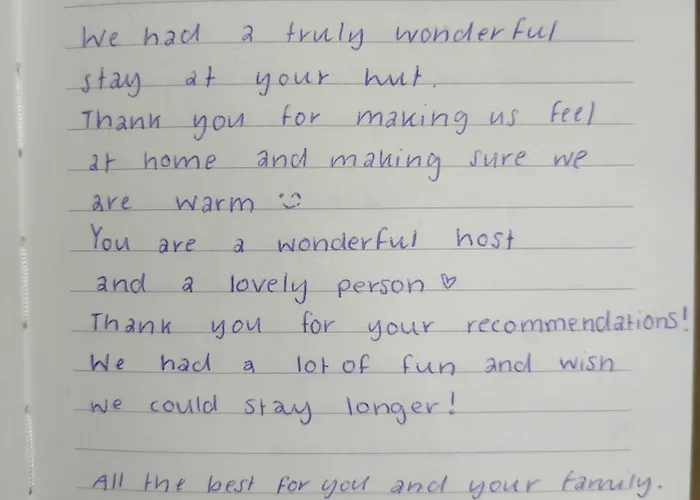 We had a truly wonderful
stay at your hut.
Thank you for making us feel
at home and making sure we
are warm :)
You are a wonderful host
and a lovely person ♡
Thank you for your recommendations!
We had a lot of fun and wish
we could stay longer!
All the best for you and your family.